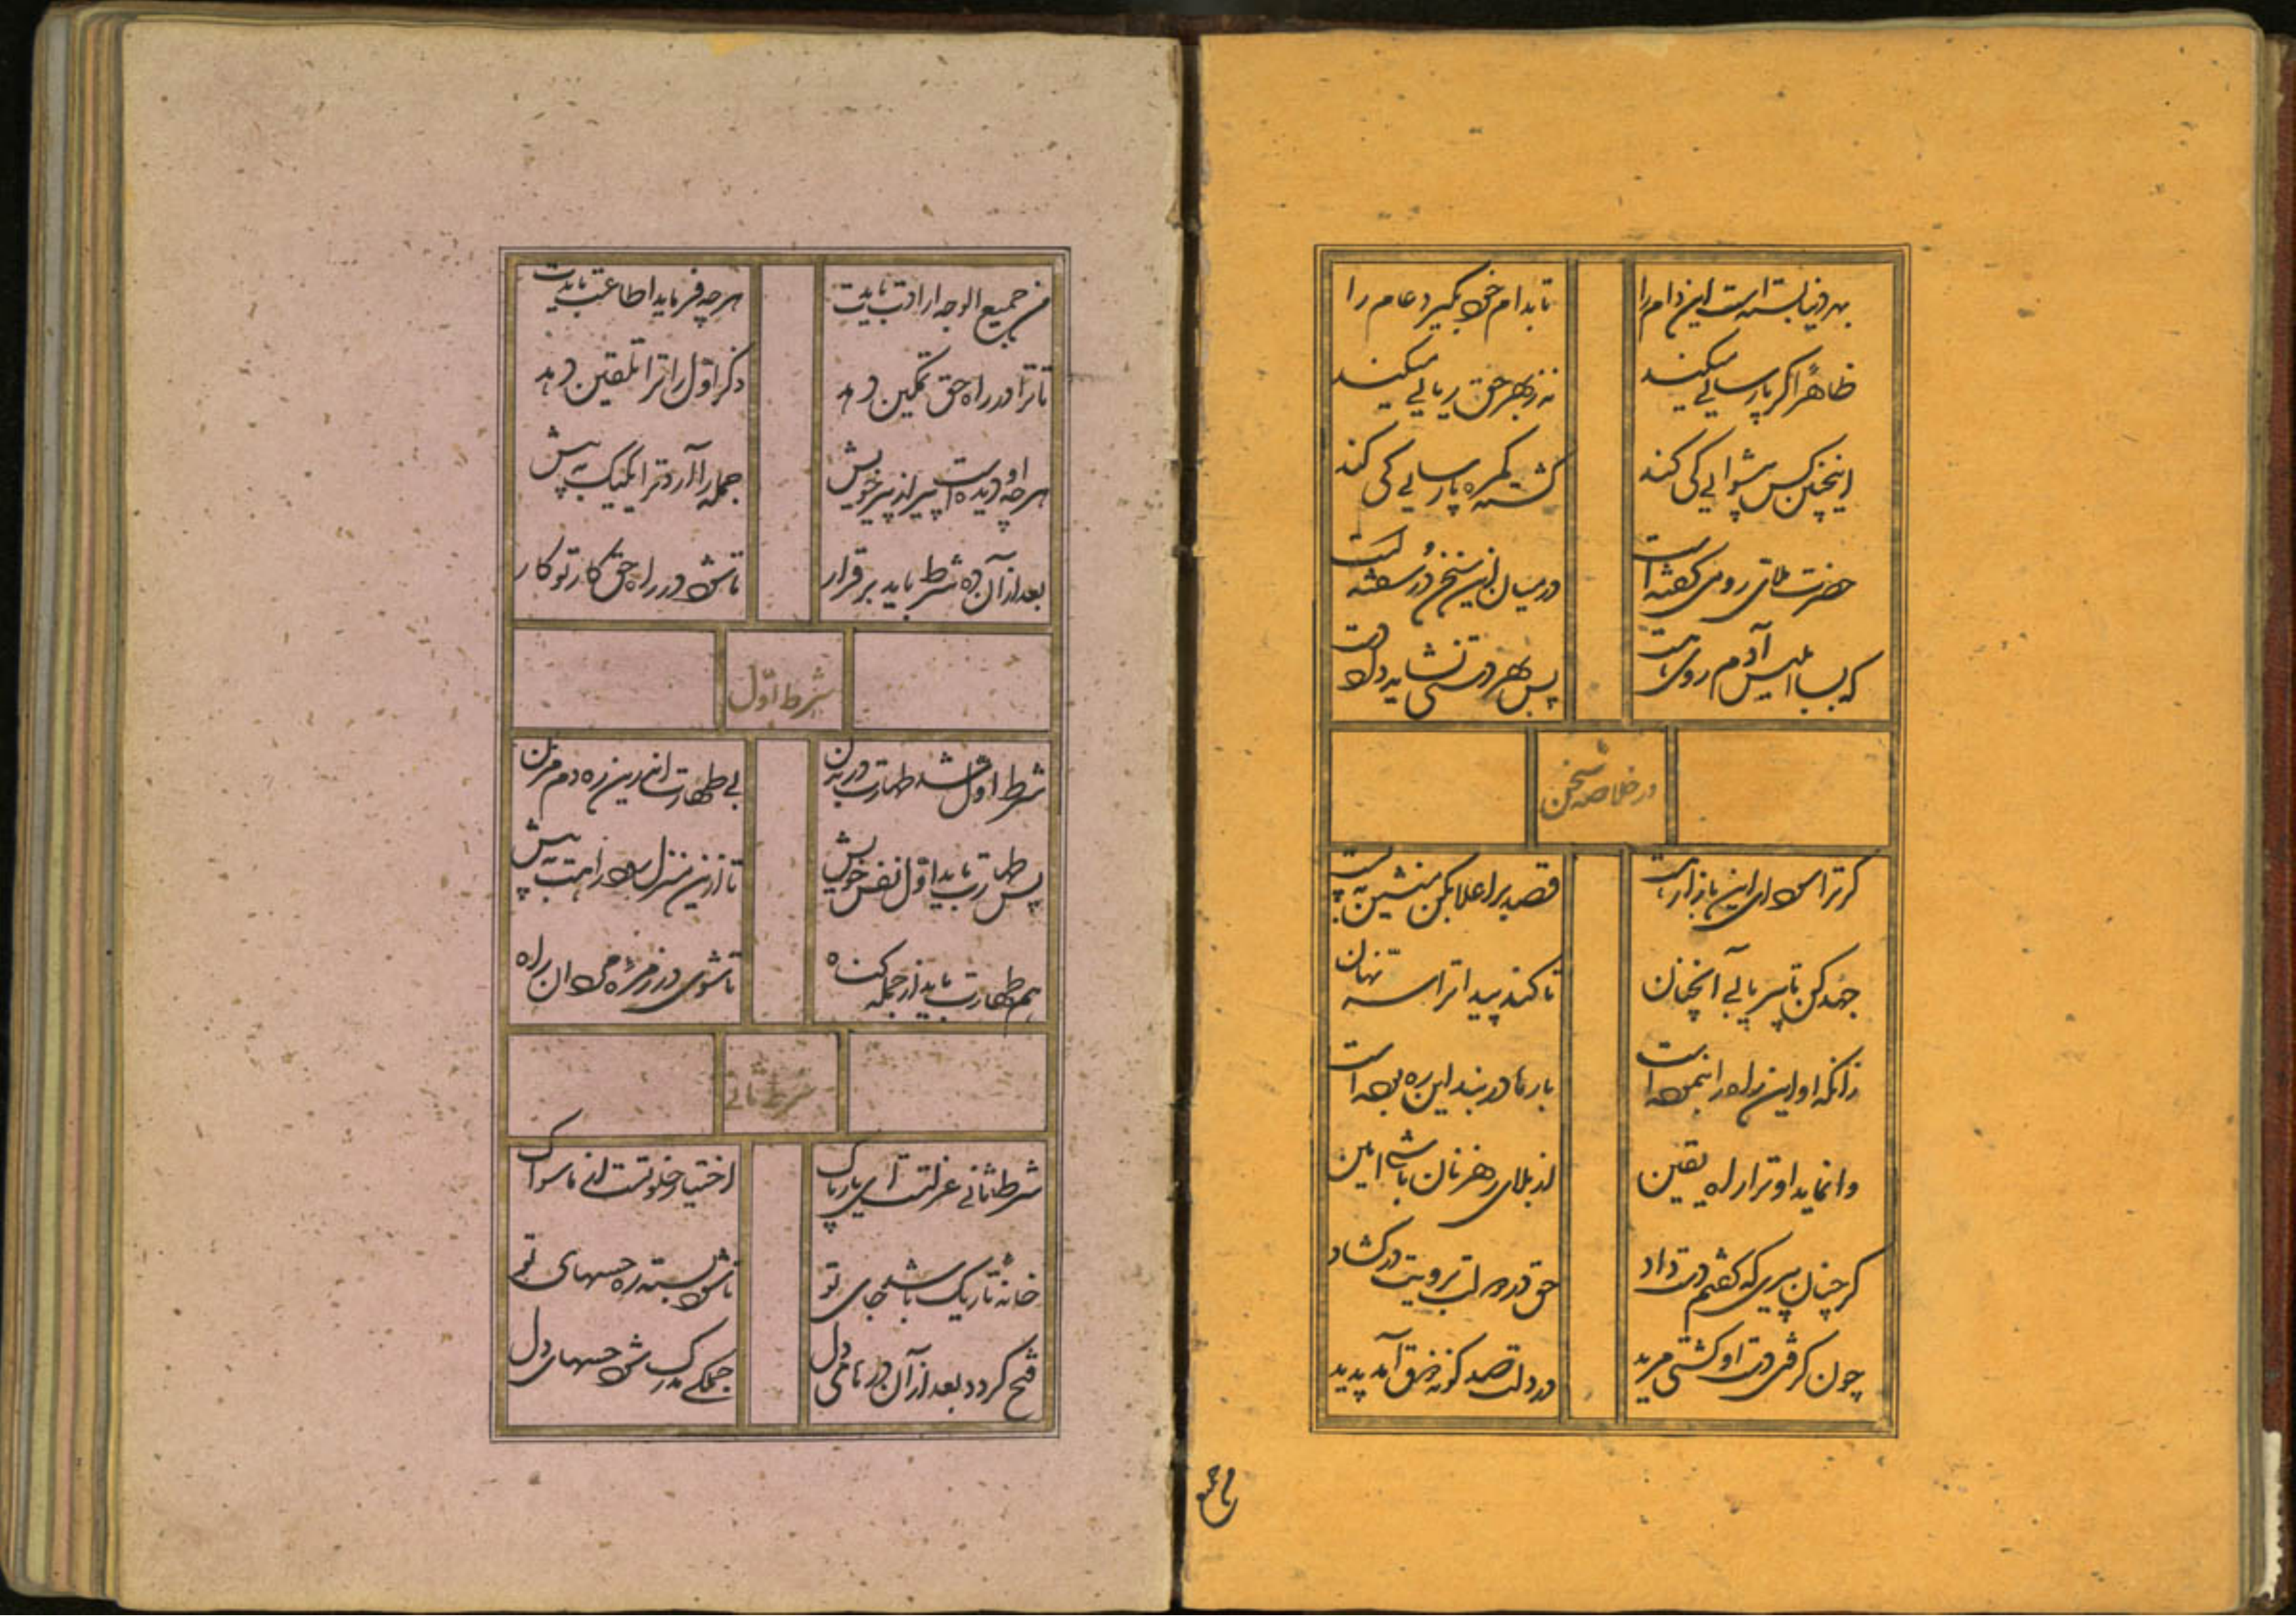 بهر دنیا بسته است این دام را تا بدام خود بگیرد عام را
ظاهرا کر پارسایی میکند نه زبهر حق ریایی میکند
اینچنین کس پیشوایی کی کند کشته کمره پارسایی کی کند
حضرت ملای رومی کفته است در میان این سخن در سفته است
که بسا ابلیس آدم روی هست پس بهر دستی نشاید داد دست
در خلاصه سخن
کر ترا سودای این بازار هست قصد بر اعلا بکن منشین به پست
جهد کن تا پیر یابی آنچنان تا کند پیدا ترا سر نهان
زانکه او این راه را پیموده است بارها در بند این ره بوده است
وا نماید او ترا راه یقین از بلای رهزنان باشی امین
کر چنان پیری که کفتم دست داد حق در دولت برویت در کشاد
چون کرفتی دست او کشتی مرید در دلت صد کونه ذوق آمد پدید
من جمیع
من جمیع الوجه ارادت بایدت هر چه فرماید اطاعت بایدت
تا ترا در راه حق تمکین دهد ذکر اول را ترا تلقین دهد
هر چه او دیده است پیر از پیر خویش جمله را آرد ترا یک یک به پیش
بعد از آن ده شرط باید برقرار تا شود در راه حق کار تو کار
شرط اول
شرط اول شد طهارت در بدن بی طهارت اندرین ره دم مزن
پس طهارت باید اول نفس خویش تا ازین منزل شود راهت به پیش
هم طهارت باید از جمله کناه تا شوی در زمره مردان راه
شرط ثانی
شرط ثانی عزلتست ای یار پاک اختیار خلوتست از ماسواک
خانه تاریک باشد جای تو تا شود بسته ره حسهای تو
فتح کردد بعد از آن درهای دل جملکی مدرک شود حسهای دل